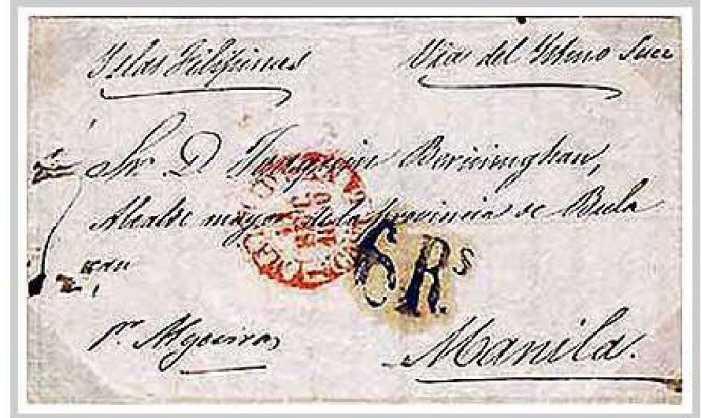 Yslas Filipinas
Via del Ystmo Suez
Sor. D. Joaquin Bericimghan,
Alcalde mayor de la provincia de Bula
can
6 Rs
pr. Algeciras
Manila.